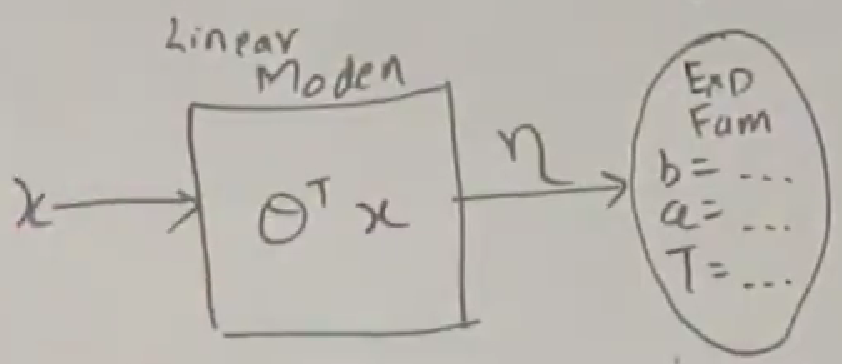 Linear
Model
x
θᵀ x
η
Exp
Fam
b = ...
a = ...
T = ...